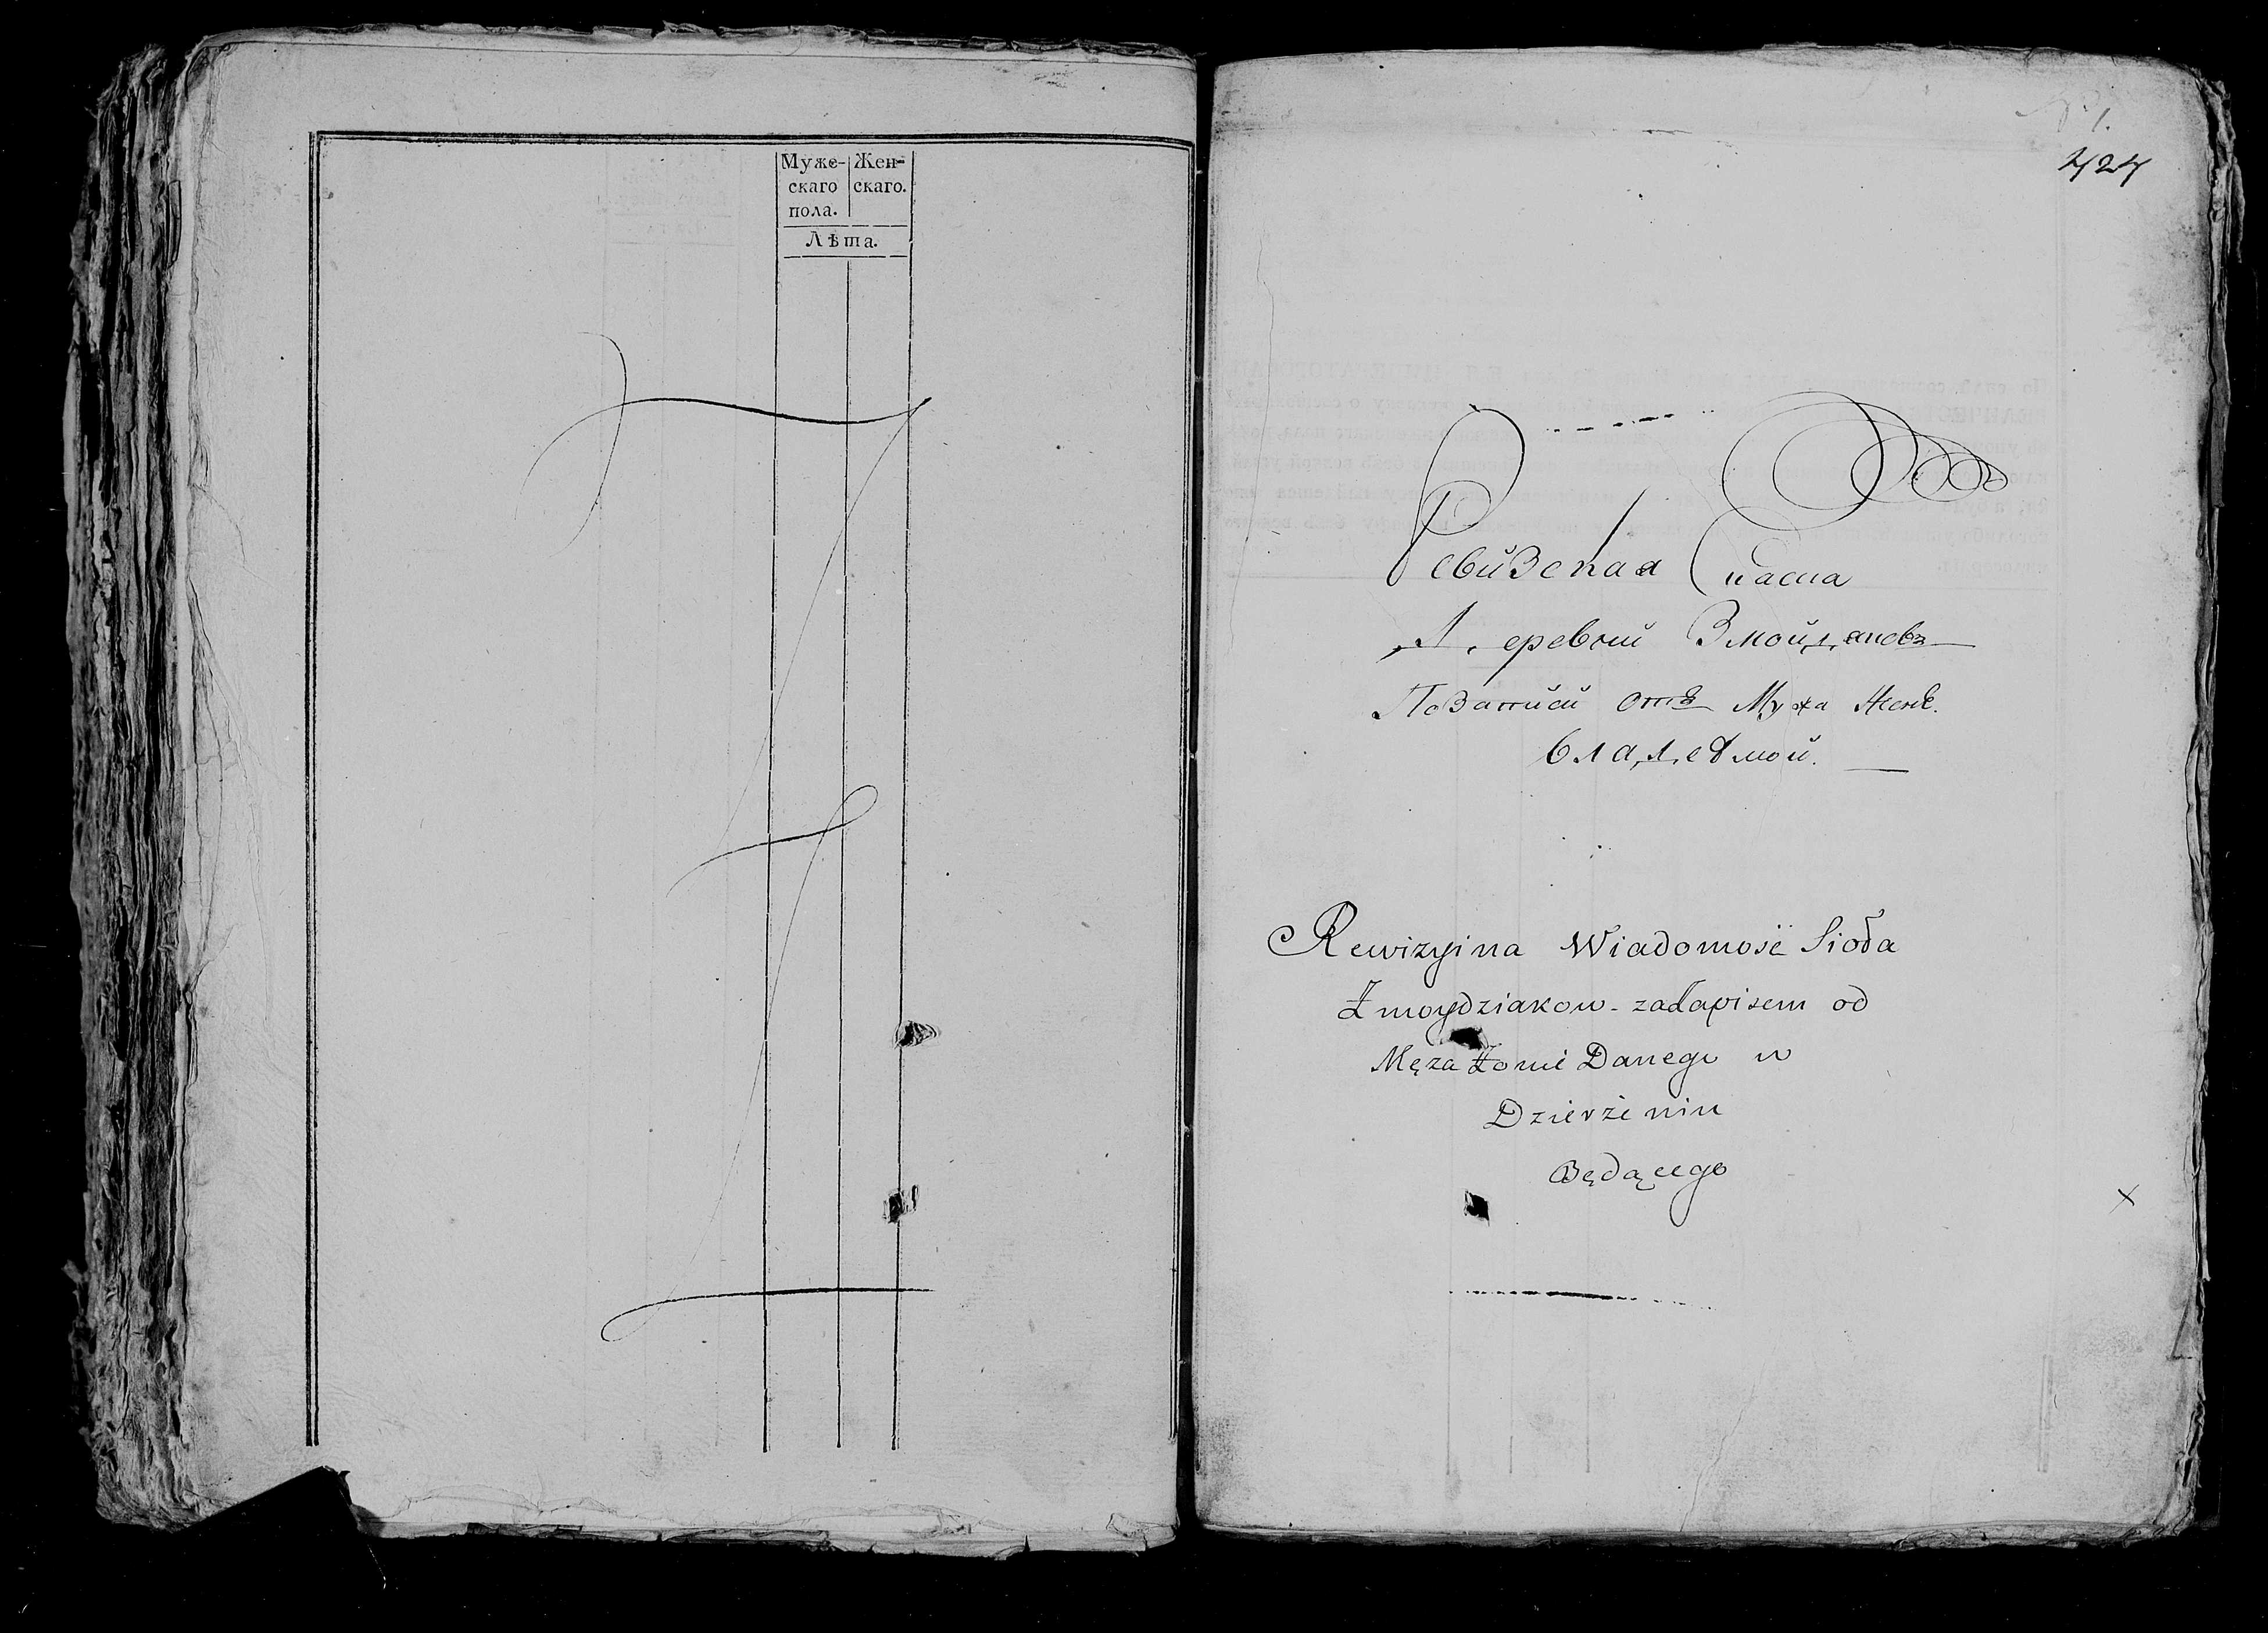 Муже- Жен-
скаго скаго.
пола.
Лѣта.
№ 1.
424
Ревизская Скаска
Деревни Змойдяновъ
По записи отъ Мужа Жене
владемой.
Rewizyina Wiadomość Sioła
Zmoydziakow - zadapisem od
Męza Żonie Danego w
Dzierżeniu
Będącego